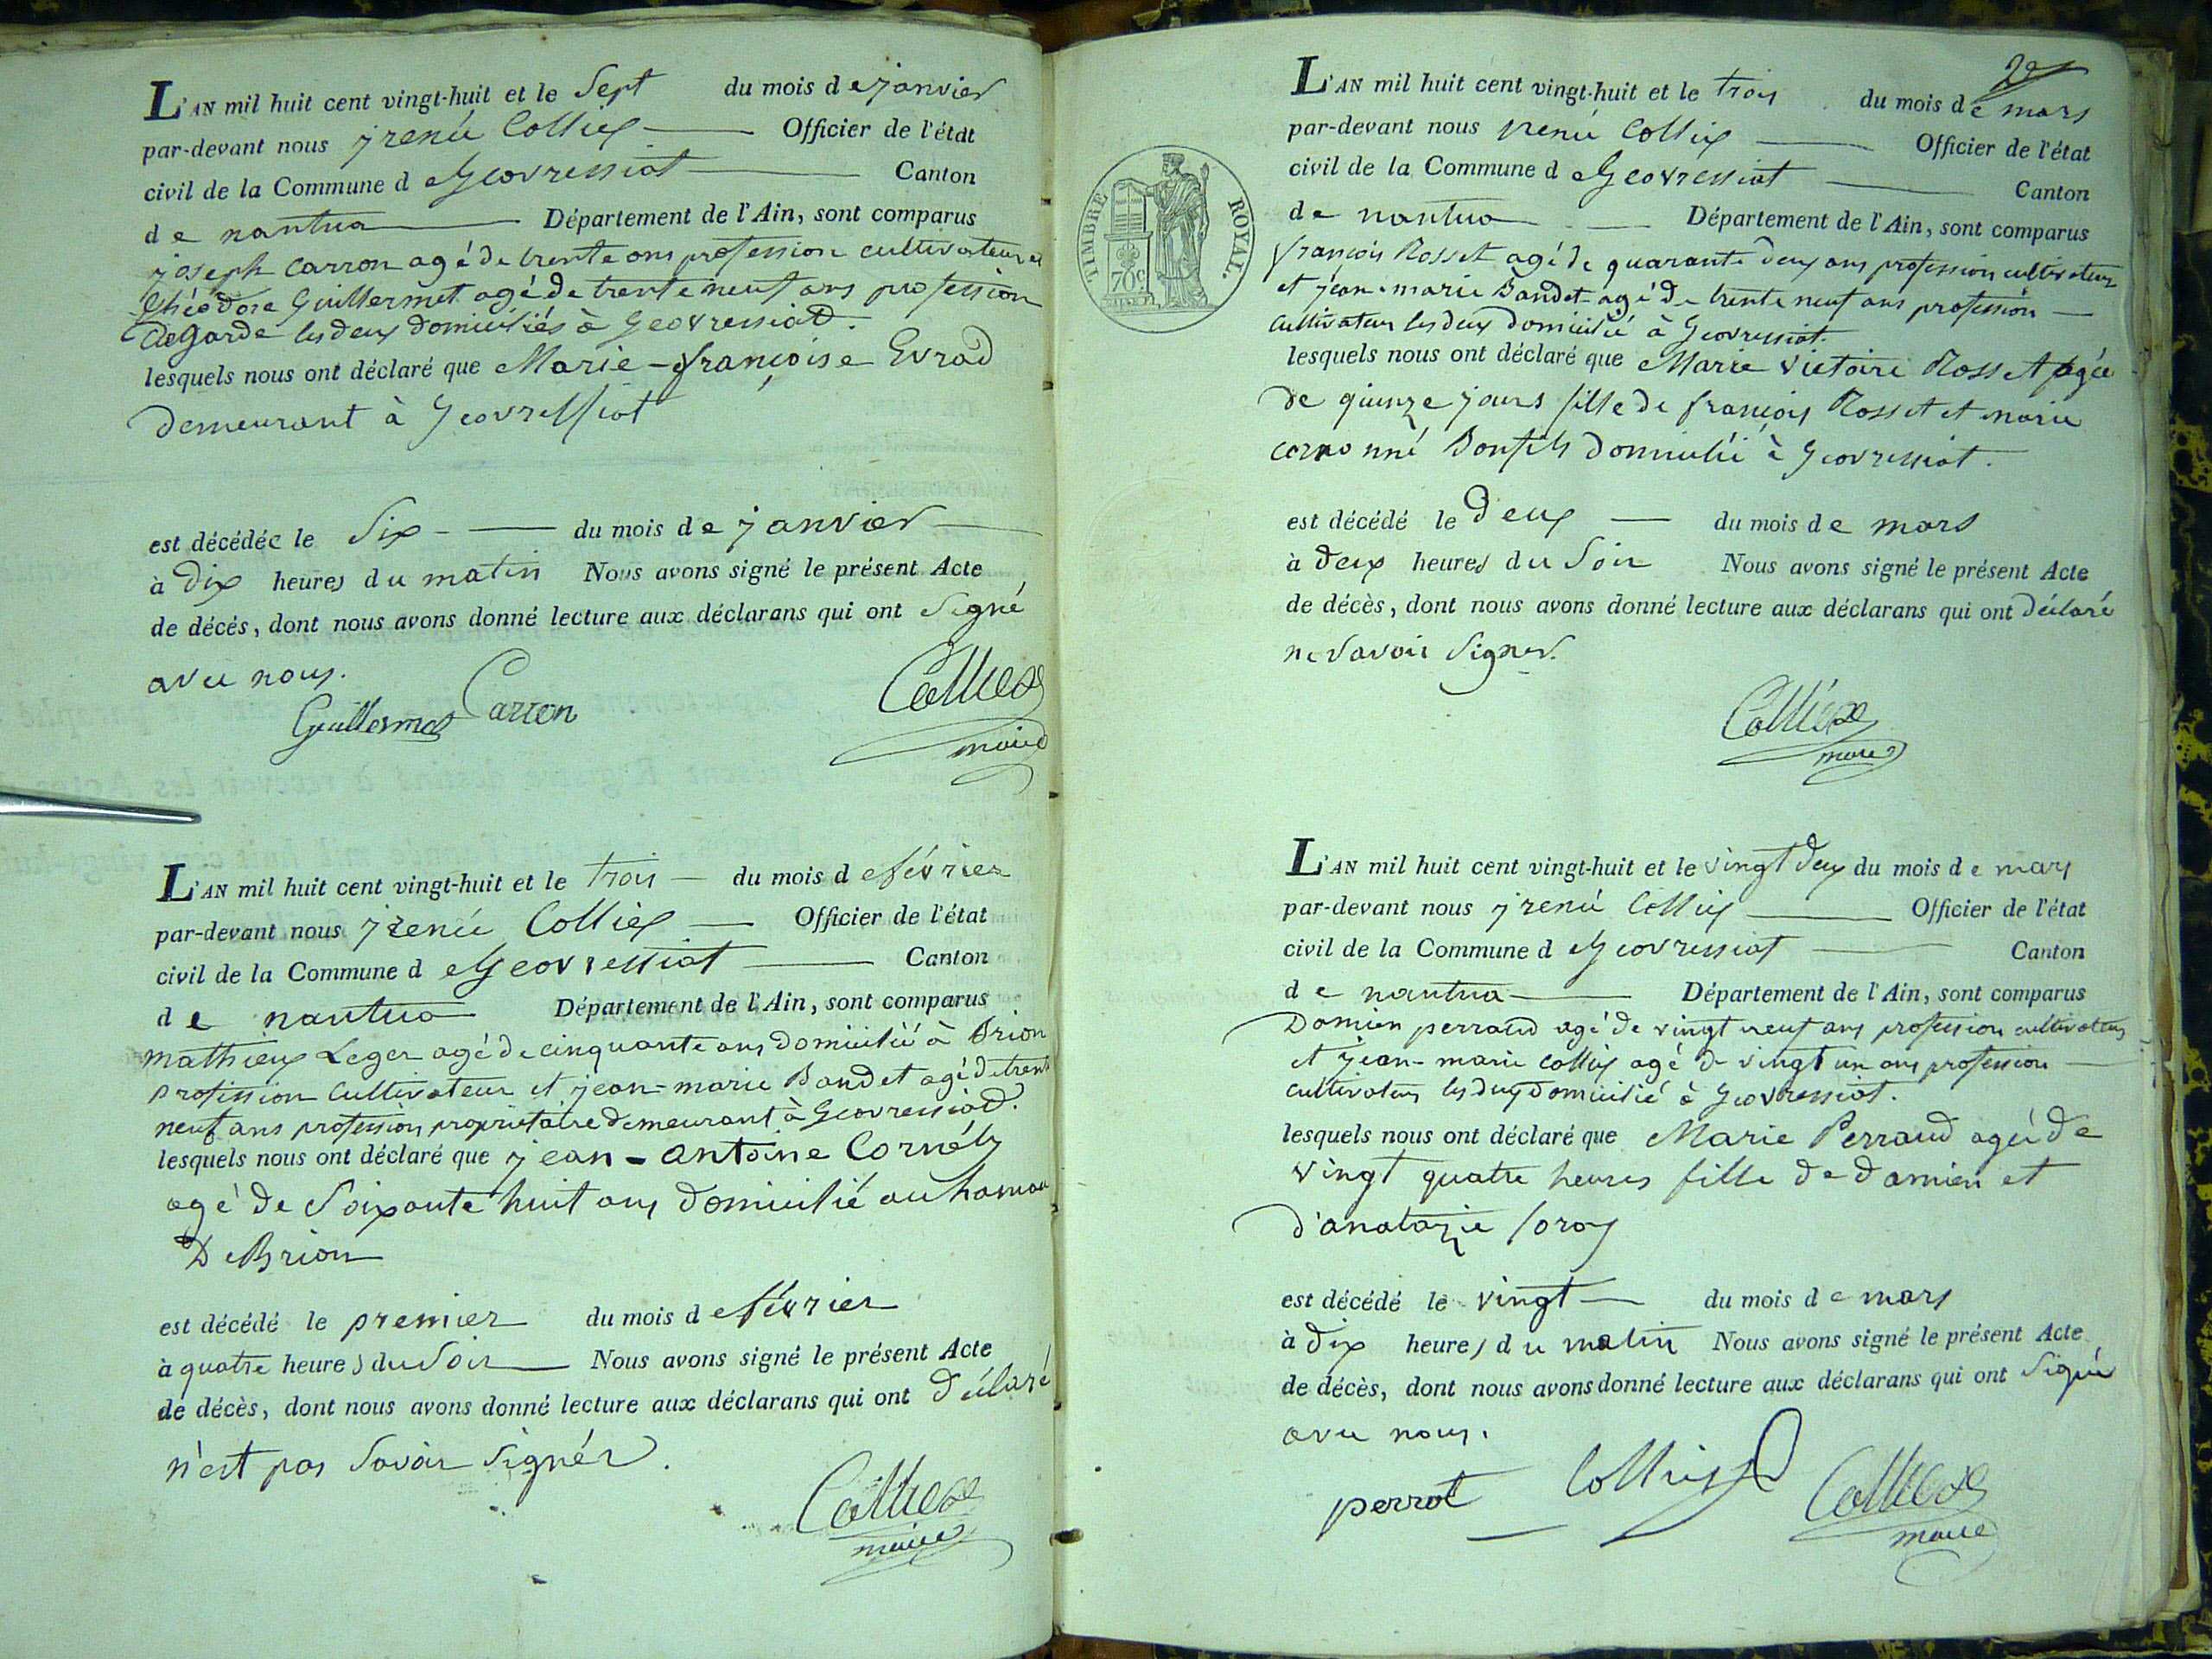 L'AN mil huit cent vingt-huit et le Sept du mois de janvier
par-devant nous jrenée Colliex Officier de l'état
civil de la Commune de Geovressiat Canton
de nantua Département de l'Ain, sont comparus
joseph Carron agé de trente ans profession cultivateur et
théodore Guillermet agé de trente neuf ans profession
de Garde les deux domiciliés à Geovressiat.
lesquels nous ont déclaré que Marie-françoise Evrad
demeurant à Geovressiat
est décédée le Six du mois de janvier
à Dix heures du matin Nous avons signé le présent Acte
de décés, dont nous avons donné lecture aux déclarans qui ont Signé
avec nous.
Guillermet Carron Colliex
maire
L'AN mil huit cent vingt-huit et le trois du mois de février
par-devant nous jrenée Colliex Officier de l'état
civil de la Commune de Geovressiat Canton
de nantua Département de l'Ain, sont comparus
mathieux Leger agé de cinquante ans domicilié à Brion
profission cultivateur et jean-marie Baudet agé de trente
neuf ans profession propriétaire demeurant à Geovressiat.
lesquels nous ont déclaré que jean-antoine Cornély
agé de Soixante huit ans domicilié au hamau
De Brion
est décédé le premier du mois de février
à quatre heures du Soir Nous avons signé le présent Acte
de décès, dont nous avons donné lecture aux déclarans qui ont Déclaré
n'est pas Savoir Signér.
Colliex
maire
2e
TIMBRE ROYAL.
70c
L'AN mil huit cent vingt-huit et le trois du mois de mars
par-devant nous jrenée Colliex Officier de l'état
civil de la Commune de Geovressiat Canton
de nantua Département de l'Ain, sont comparus
françois Rosset agé de quarante deux ans profession cultivateur
et jean-marie Baudet agé de trente neuf ans profession
cultivateur les deux domicilié à Geovressiat.
lesquels nous ont déclaré que Marie victoire Rosset agée
de quinze jours fille de françois Rosset et marie
Bonfils domicilié à Geovressiat.
est décédé le Deux du mois de mars
à deux heures du Soir Nous avons signé le présent Acte
de décès, dont nous avons donné lecture aux déclarans qui ont déclaré
ne Savoir Signer.
Colliex
maire
L'AN mil huit cent vingt-huit et le vingt deux du mois de mars
par-devant nous jrenée Colliex Officier de l'état
civil de la Commune de Geovressiat Canton
de nantua Département de l'Ain, sont comparus
Damien perraud agé de vingt neuf ans profession cultivateur
et jean-marie Colliex agé de vingt un ans profession
cultivateur les deux domicilié à Geovressiat.
lesquels nous ont déclaré que Marie Perraud agée de
vingt quatre heures fille de damien et
d'anatazie
est décédé le vingt du mois de mars
à dix heures du matin Nous avons signé le présent Acte
de décès, dont nous avons donné lecture aux déclarans qui ont Signé
avec nous.
perrot Colliex Colliex
maire